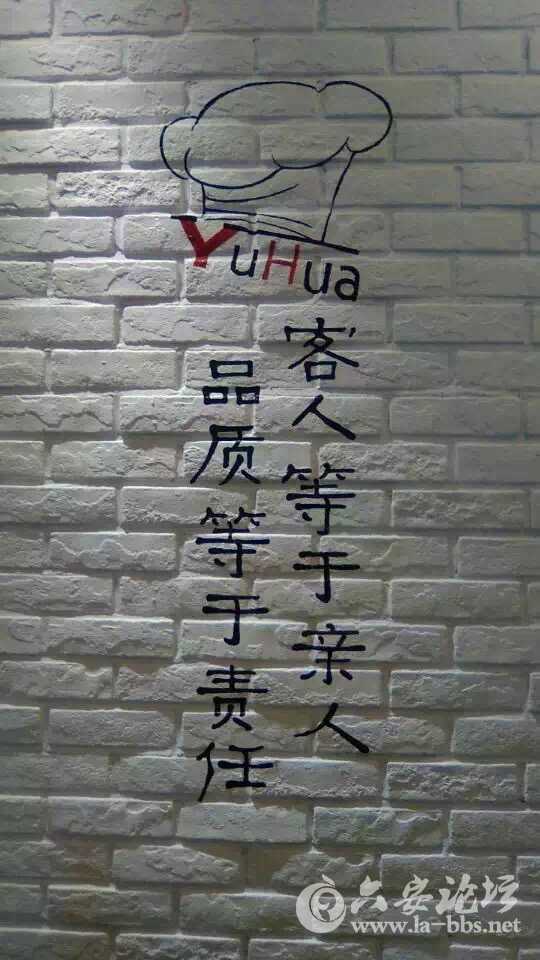 YuHua
客人等于亲人
品质等于责任
六安论坛
www.la-bbs.net